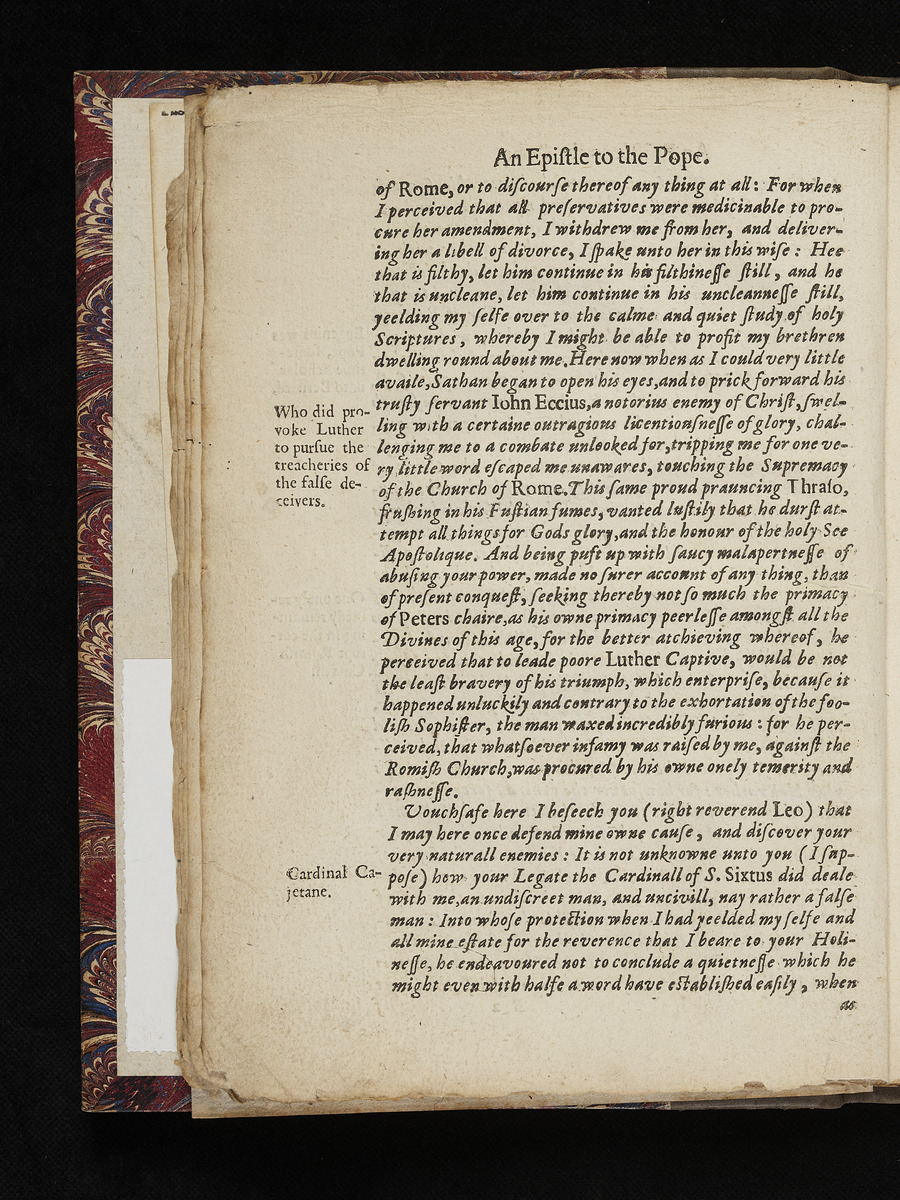 An Epiſtle to the Pope.
of Rome, or to diſcourſe thereof any thing at all: For when
I perceived that all preſervatives were medicinable to pro-
cure her amendment, I withdrew me from her, and deliver-
ing her a libell of divorce, I ſpake unto her in this wiſe: Hee
that is filthy, let him continue in his filthineſſe ſtill, and he
that is uncleane, let him continue in his uncleanneſſe ſtill,
yeelding my ſelfe over to the calme and quiet ſtudy of holy
Scriptures, whereby I might be able to profit my brethren
dwelling round about me. Here now when as I could very little
availe, Sathan began to open his eyes, and to prick forward his
truſty ſervant Iohn Eccius, a notorius enemy of Chriſt, ſwel-
ling with a certaine outragious licentiouſneſſe of glory, chal-
lenging me to a combate unlooked for, tripping me for one ve-
ry little word eſcaped me unawares, touching the Supremacy
of the Church of Rome. This ſame proud prauncing Thraſo,
fruſhing in his Fuſtian fumes, vanted luſtily that he durſt at-
tempt all things for Gods glory, and the honour of the holy See
Apoſtolique. And being puft up with ſaucy malapertneſſe of
abuſing your power, made no ſurer account of any thing, than
of preſent conqueſt, ſeeking thereby not ſo much the primacy
of Peters chaire, as his owne primacy peerleſſe amongſt all the
Divines of this age, for the better atchieving whereof, he
perceived that to leade poore Luther Captive, would be not
the leaſt bravery of his triumph, which enterpriſe, becauſe it
happened unluckily and contrary to the exhortation of the foo-
liſh Sophiſter, the man waxed incredibly furious: for he per-
ceived, that whatſoever infamy was raiſed by me, againſt the
Romiſh Church, was procured by his owne onely temerity and
raſhneſſe.
Vouchſafe here I beſeech you (right reverend Leo) that
I may here once defend mine owne cauſe, and diſcover your
very naturall enemies: It is not unknowne unto you (I ſup-
poſe) how your Legate the Cardinall of S. Sixtus did deale
with me, an undiſcreet man, and uncivill, nay rather a falſe
man: Into whoſe protection when I had yeelded my ſelfe and
all mine eſtate for the reverence that I beare to your Holi-
neſſe, he endeavoured not to conclude a quietneſſe which he
might even with halfe a word have eſtabliſhed eaſily, when
as
Who did pro-
voke Luther
to purſue the
treacheries of
the falſe de-
ceivers.
Cardinal Ca-
jetane.